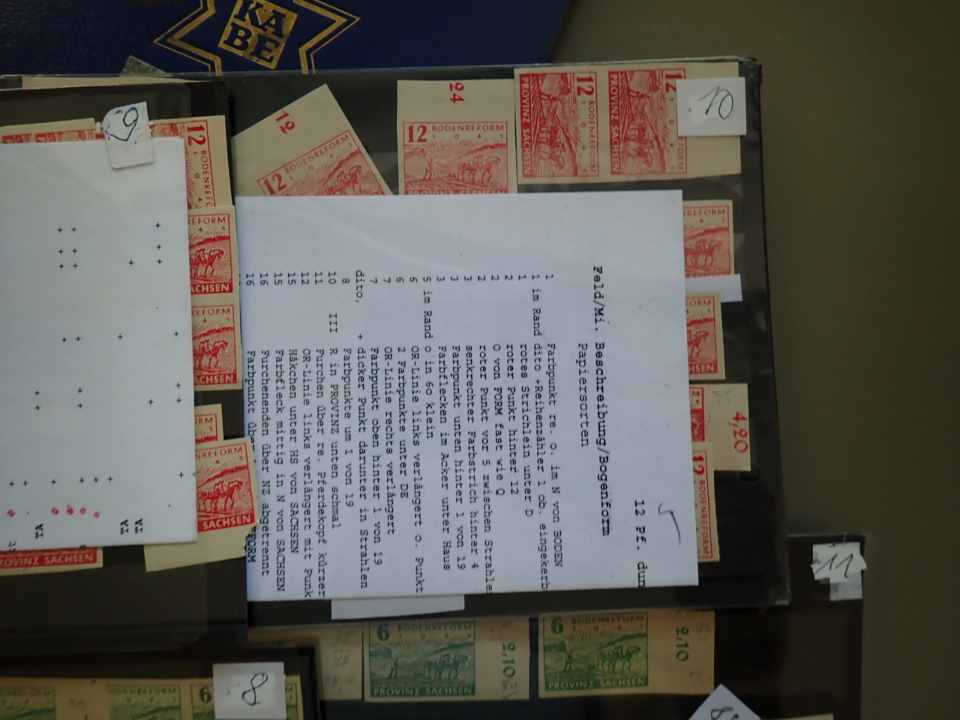 KA
BE
9
10
11
8
12
24
12
BODENREFORM
12
BODENREFORM
12
BODENREFORM
PROVINZ SACHSEN
PROVINZ SACHSEN
12 Pf. dun
Feld/Mi. Beschreibung/Bogenform
Papiersorten
1 Farbpunkt re. o. im N von BODEN
1 im Rand dito +Reihenzähler 1 ob. eingekerb
1 rotes Strichlein unter D
2 roter Punkt hinter 12
2 O von FORM fast wie Q
2 roter Punkt vor 5 zwischen Strahle
3 senkrechter Farbstrich hinter 4
3 Farbpunkt unten hinter 1 von 19
3 Farbflecken im Acker unter Haus
5 im Rand o in 60 klein
6 OR-Linie links verlängert o. Punkt
6 2 Farbpunkte unter DE
7 OR-Linie rechts verlängert
7 Farbpunkt oben hinter 1 von 19
dito, + dicker Punkt darunter in Strahlen
8 Farbpunkte um 1 von 19
10 III R in PROVINZ unten schmal
11 Furchen über re. Pferdekopf kürzer
12 OR-Linie links verlängert mit Punk
15 Häkchen unter HS von SACHSEN
15 Farbfleck mittig in N von SACHSEN
16 Furchenenden über NZ abgetrennt
16 Farbpunkt
4,20
12
6
BODENREFORM
PROVINZ SACHSEN
2,10
6
BODENREFORM
PROVINZ SACHSEN
2,10
6